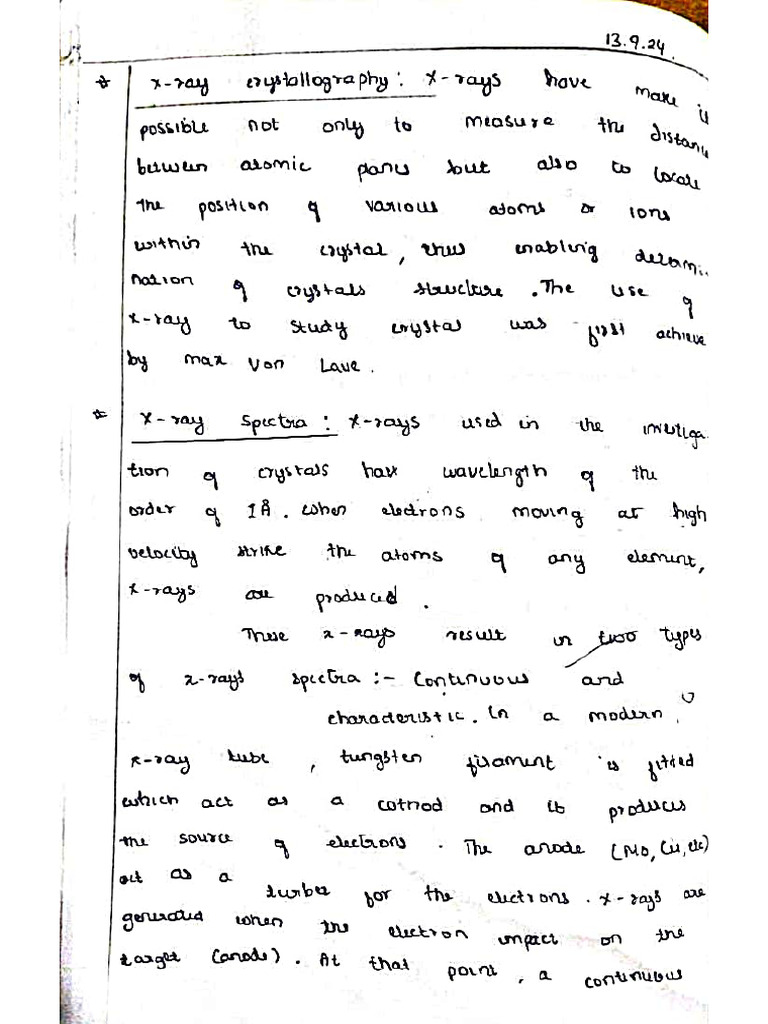 13.9.24.
* x-ray crystallography: x-rays have make it
possible not only to measure the distanc
between atomic panes but also to locate
the position of various atoms or ions
within the crystal, thus enabling determi-
nation of crystals structure. The use of
x-ray to study crystal was first achieve
by max von Laue.
* X-ray spectra: x-rays used in the investiga
tion of crystals have wavelength of the
order of 1Å. When electrons moving at high
velocity strike the atoms of any element,
x-rays are produced.
These x-rays result in two types
of x-rays spectra :- Continuous and
characteristic. In a modern
x-ray tube, tungsten filament is fitted
which act as a cathod and it produces
the source of electrons. The anode (Mo, Cu, etc)
act as a for the electrons. x-rays are
generated when the electron impact on the
target (anode). At that point, a continuous